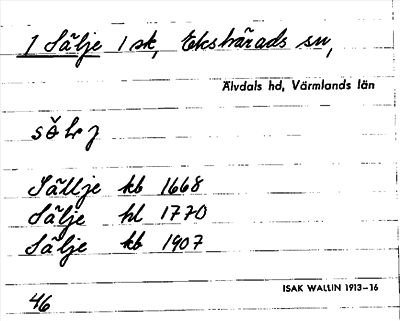 1 Sälje 1 sk, Ekshärads sn,
Älvdals hd, Värmlands län
Sällje kb 1668
Sälje hl 1770
Sälje kb 1907
ISAK WALLIN 1913–16
46